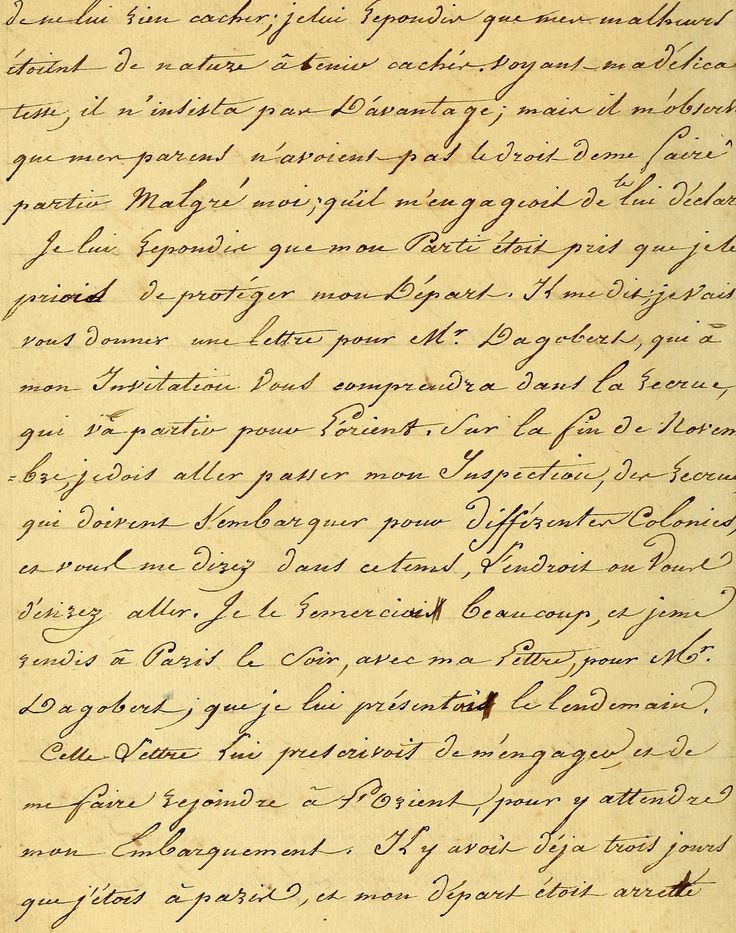 de ne lui rien cacher; je lui repondis que mes malheurs
étoient de nature à tenir cachés. voyant ma délica
tesse, il n'insista pas D'avantage; mais il m'observ
que mes parens n'avoient pas le droit de me faire
partir Malgré moi; qu'il m'engageoit de te lui déclar
Je lui repondis que mon Parti étoit pris que je le
priois de protéger mon Départ. Il me dit; je vais
vous donner une lettre pour Mr. Dagobert, qui à
mon Invitation vous comprendra dans la recrue,
qui va partir pour L'orient. Sur la fin de Novem
=bre, je dois aller passer mon Inspection, des recrue
qui doivent s'embarquer pour différentes Colonies,
et vous me direz dans ce tems, l'endroit ou vous
désirez aller. Je le remerciois beaucoup, et je me
rendis à Paris le Soir, avec ma Lettre, pour Mr.
Dagobert; que je lui présentois le lendemain.
Cette Lettre Lui prescrivoit de m'engager, et de
me faire rejoindre à l'Orient, pour y attendre
mon Embarquement. Il y avoit déja trois jours
que j'étois à paris, et mon départ étoit arretté